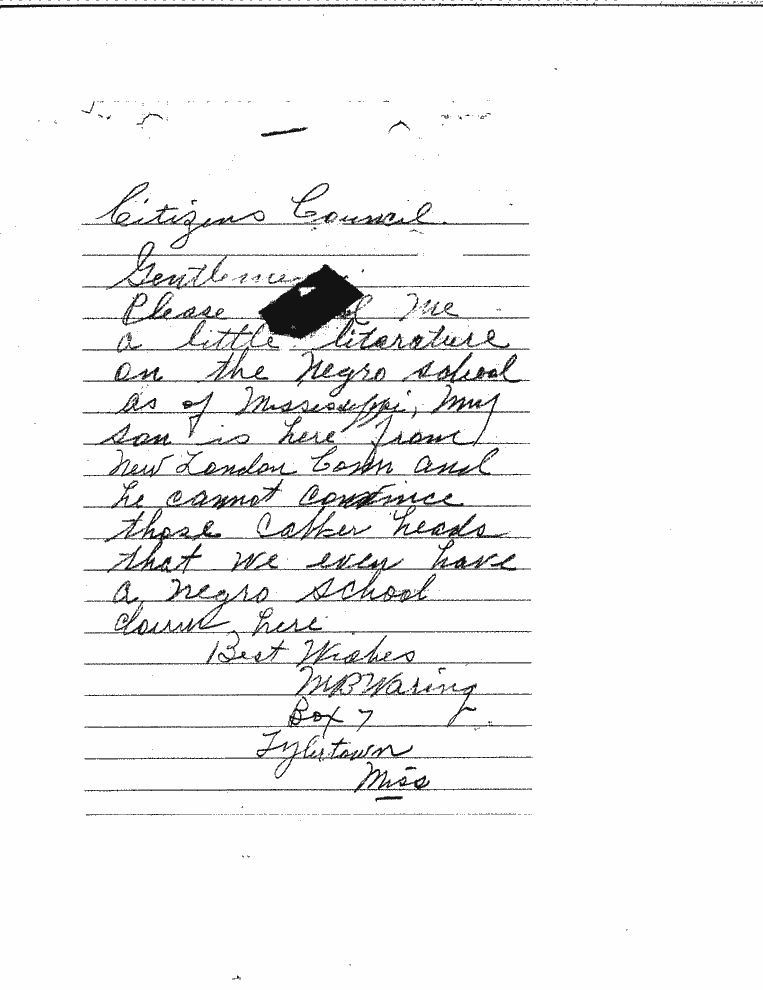 Citizens Council.
Gentleme
Please me
a little literature
on the Negro school
as of Mississippi, my
son is here from
New London Conn and
he cannot convince
those heads
that we even have
a negro school
down here
Best Wishes
MB Waring
Box 7
Tylertown
Miss